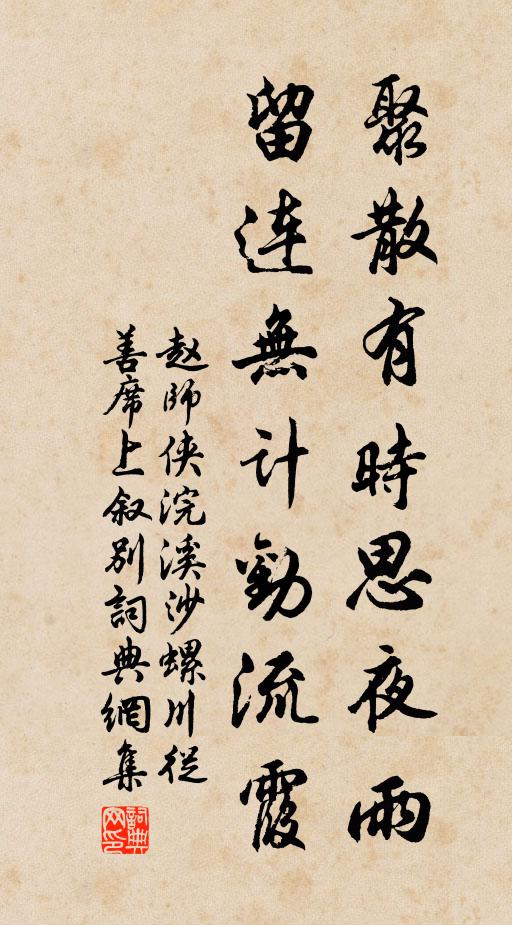 聚散有時思夜雨
留連無計勸流霞
赵師侠浣溪沙螺川從
善席上叙别詞典網集
詞典网印